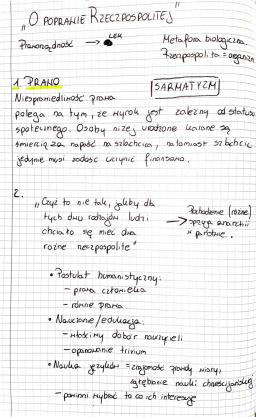 "O POPRAWIE RZECZPOSPOLITEJ"
Praworządność → LEK
Metafora biologiczna.
Rzeczpospolita = organizm
1. PRAWO
SARMATYZM
Niesprawiedliwość prawa
polega na tym, że wyrok jest zależny od statusu
społecznego. Osoby niżej urodzone karane są
śmiercią za napaść na szlachcica, natomiast szlachcic
jedynie musi zadość uczynić finansowo.
2.
"Czyż to nie tak, jakby dla
tych dwu rodzajów ludzi
chciało się mieć dwa
różne rzeczpospolite"
→ Pochodzenie (różne)
sprzyja anarchii
w państwie.
• Postulat humanistyczny:
– prawa człowieka
– równe prawa
• Nauczanie/edukacja:
– właściwy dobór nauczycieli
– opanowanie trivium
• Nauka języków = znajomość prawdy wiary,
zgłębianie nauki chrześcijańskiej
– powinni wybrać to co ich interesuje